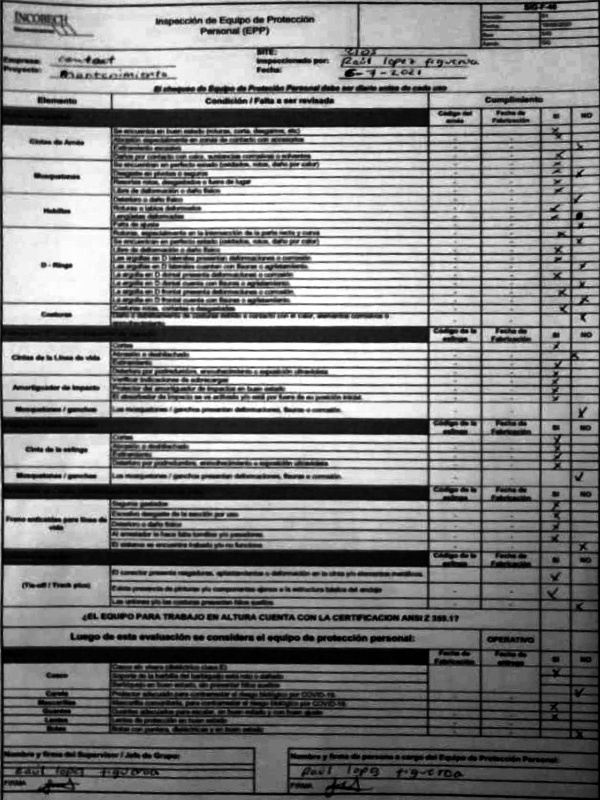 INCOBECH
Inspección de Equipo de Protección
Personal (EPP)
SIG-F-46
Empresa: contact
Proyecto: Mantenimiento
SITE:
Inspeccionado por: Raúl lopez figueroa
Fecha: 6-7-2021
El chequeo de Equipo de Protección Personal debe ser diario antes de cada uso
Elemento Condición / Falta a ser revisada Cumplimiento
Código del arnés Fecha de Fabricación SI NO
Cintas de Arnés
Se encuentra en buen estado (roturas, corte, desgarros, etc)
Abrasión especialmente en zonas de contacto con accesorios
Estiramiento excesivo
Daños por contacto con calor, sustancias corrosivas o solventes
Mosquetones
Se encuentran en perfecto estado (oxidados, rotos, daño por calor)
Desgaste en pivotes o seguros
Resortes rotos, desgastados o fuera de lugar
Libre de deformación o daño físico
Hebillas
Deterioro o daño físico
Roturas o lados deformados
Lengüetas deformadas
Falta de ajuste
D - Rings
Roturas, especialmente en la intersección de la parte recta y curva
Se encuentran en perfecto estado (oxidados, rotos, daño por calor)
Libre de deformación o daño físico
Las argollas en D laterales presentan deformaciones o corrosión
Las argollas en D laterales cuentan con fisuras o agrietamiento.
La argolla en D dorsal presenta deformaciones o corrosión
La argolla en D dorsal cuenta con fisuras o agrietamiento.
La argolla en D frontal presenta deformaciones o corrosión.
La argolla en D frontal cuenta con fisuras o agrietamiento.
Costuras
Costuras rotas, cortadas o desgastadas
Código de la eslinga Fecha de Fabricación SI NO
Cintas de la Línea de vida
Cortes
Abrasión o deshilachado
Estiramiento
Deterioro por podredumbre, enmohecimiento o exposición ultravioleta
Amortiguador de impacto
Verificar indicaciones de sobrecargas
Protector del amortiguador de impactos en buen estado
El absorbedor de impacto se ve activado y/o está por fuera de su posición inicial.
Mosquetones / ganchos Los mosquetones / ganchos presentan deformaciones, fisuras o corrosión.
Código de la eslinga Fecha de Fabricación SI NO
Cinta de la eslinga
Cortes
Abrasión o deshilachado
Estiramiento
Deterioro por podredumbre, enmohecimiento o exposición ultravioleta
Mosquetones / ganchos Los mosquetones / ganchos presentan deformaciones, fisuras o corrosión.
Código de la eslinga Fecha de Fabricación SI NO
Freno anticaídas para línea de vida
Seguros gastados
Excesivo desgaste de la sección por uso
Deterioro o daño físico
Al arrestador le hace falta tornillos y/o pasadores.
El sistema se encuentra trabado y/o no funciona.
Código de la eslinga Fecha de Fabricación SI NO
(Tie-off / Track plus)
Existe presencia de pinturas y/o componentes ajenos a la estructura básica del anclaje
Las uniones y/o las costuras presentan hilos sueltos
¿EL EQUIPO PARA TRABAJO EN ALTURA CUENTA CON LA CERTIFICACION ANSI Z 359.1?
Luego de esta evaluación se considera el equipo de protección personal: OPERATIVO
Fecha de Fabricación Fecha de entrega SI NO
Casco
Casco sin visera (dieléctrico clase E)
Soporte de la barbilla del barbiquejo está roto o dañado
Careta Protector adecuado para contrarrestar el riesgo biológico por COVID-19.
Mascarillas Mascarilla comunitaria, para contrarrestar el riesgo biológico por COVID-19.
Guantes Guantes adecuados para escalar, en buen estado y con buen ajuste
Lentes Lentes de protección en buen estado
Botas Botas con puntera, dieléctricas y en buen estado
Nombre y firma del Supervisor / Jefe de Grupo:
Raúl lopez figueroa
FIRMA
Nombre y firma de persona a cargo del Equipo de Protección Personal:
Raúl lopez figueroa
FIRMA